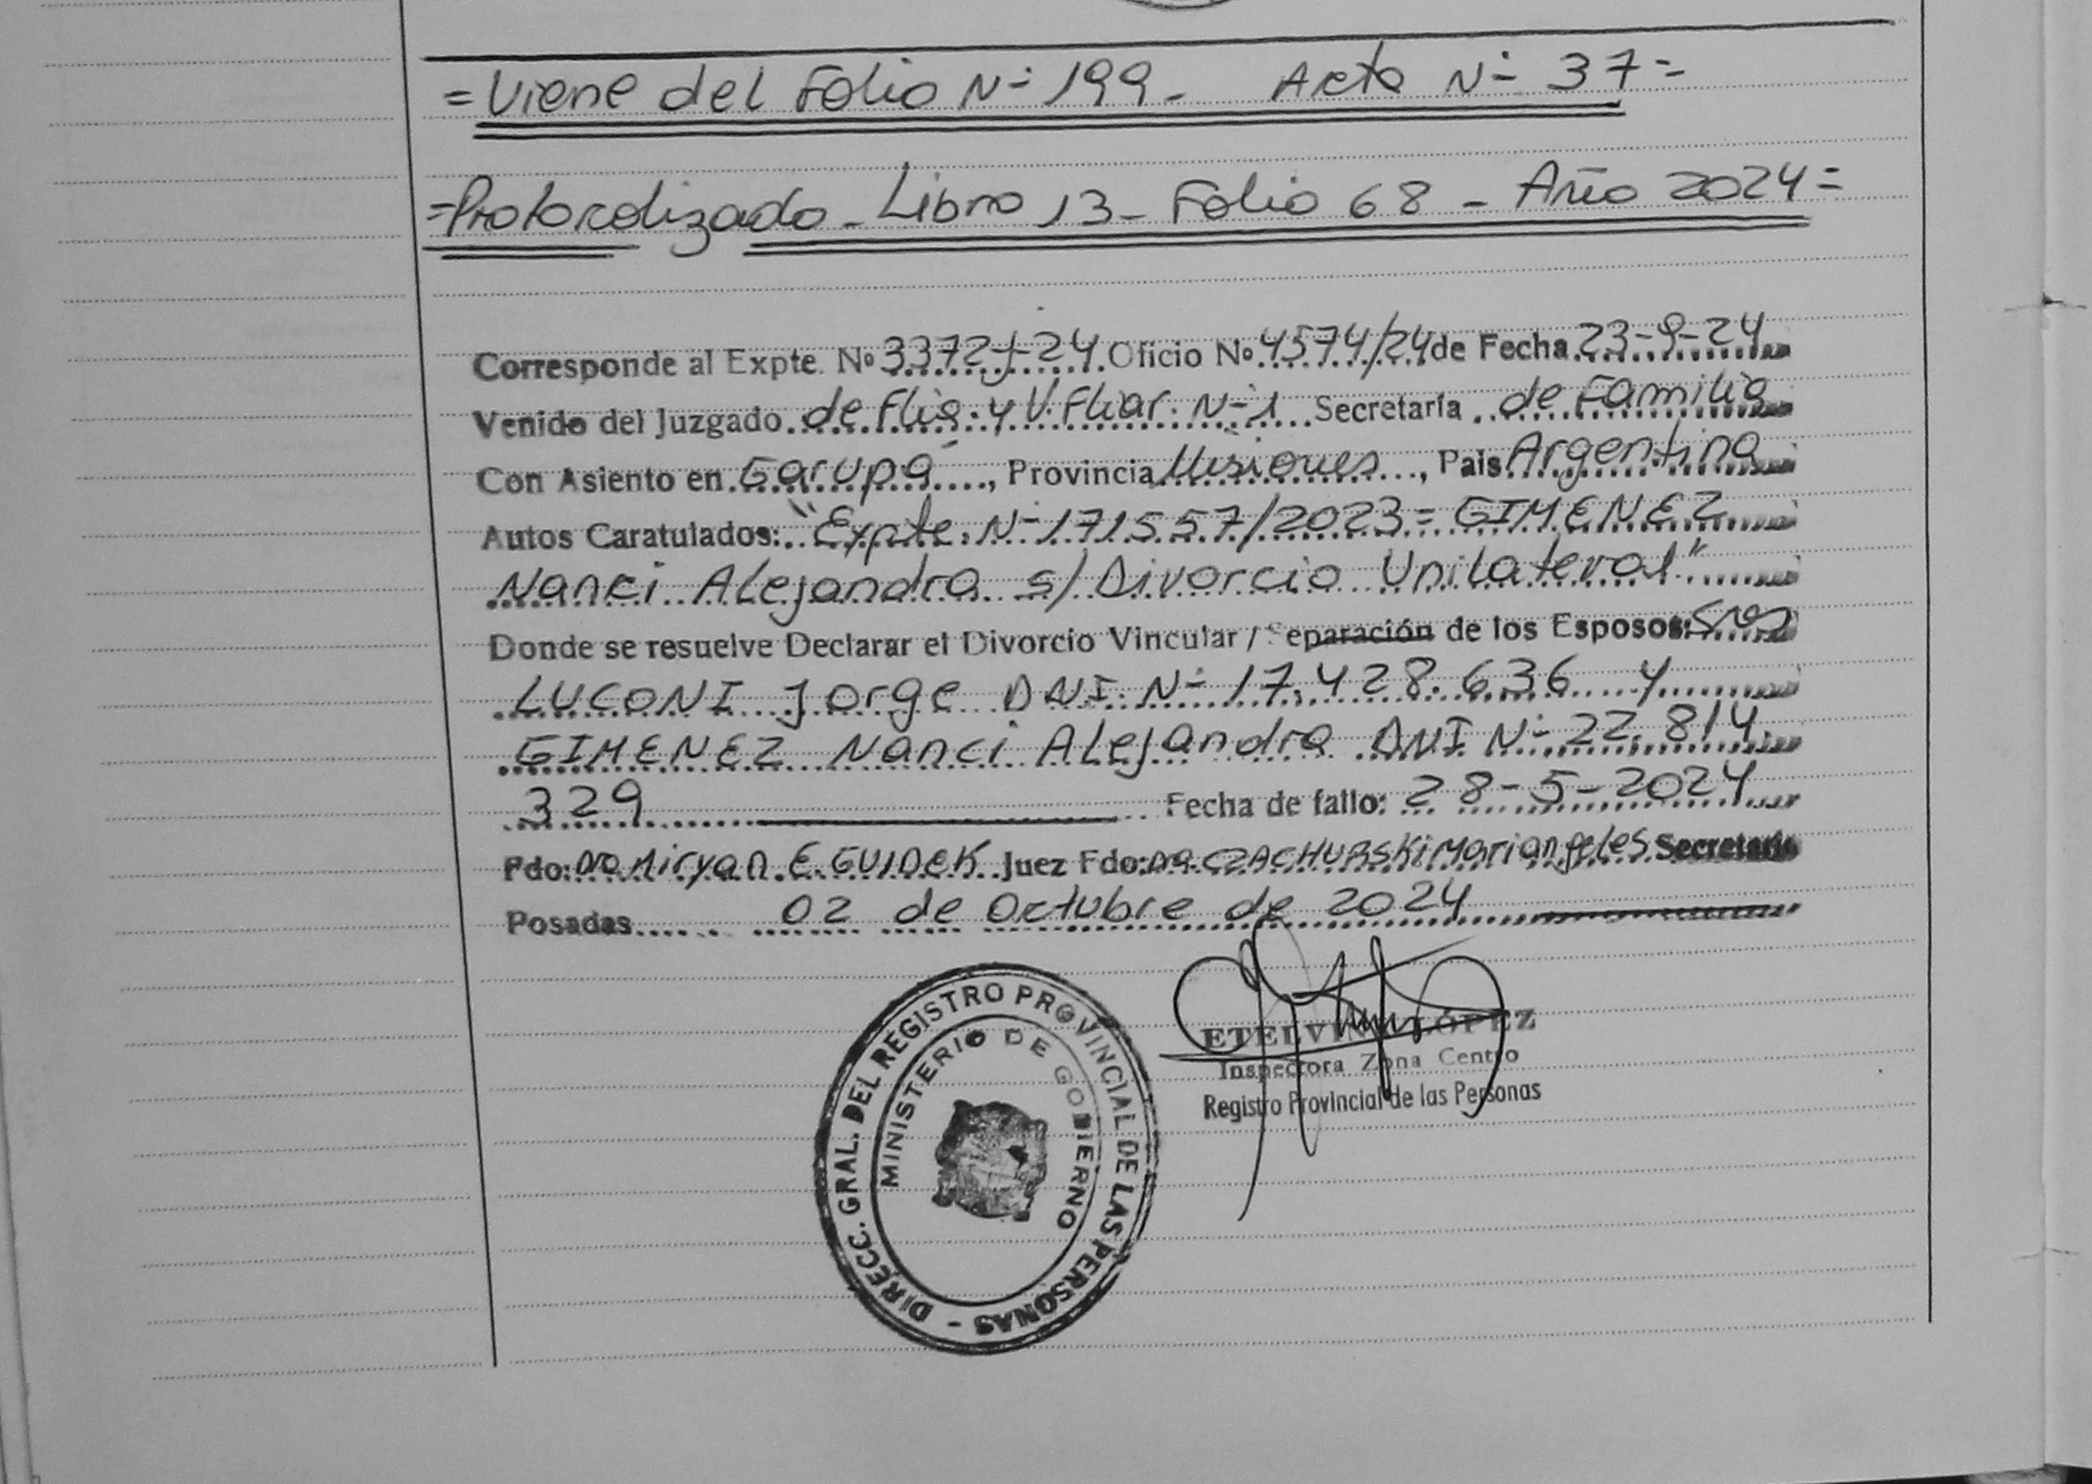 =Viene del Folio N- 199- Acta N- 37=
=Protocolizado- Libro 13- Folio 68 - Año 2024=
Corresponde al Expte. Nº 3372-J-24 Oficio Nº 4574/24 de Fecha 23-9-24
Venido del Juzgado de Flia. y V. Fliar. N-1 Secretaría de Familia
Con Asiento en Garupá, Provincia Misiones, Pais Argentina
Autos Caratulados: "Expte. N-171557/2023= GIMENEZ
Nanci Alejandra s/ Divorcio Unilateral"
Donde se resuelve Declarar el Divorcio Vincular / Separación de los Esposos: Sres
LUCONI Jorge DNI. N- 17.428.636 y
GIMENEZ Nanci Alejandra DNI N- 22.814.
329 Fecha de fallo: 28-5-2024
Fdo: Dra Miryan E. GUIDEK Juez Fdo: Dra. CZACHURSKI Mariangeles Secretario
Posadas 02 de Octubre de 2024
DIRECC. GRAL. DEL REGISTRO PROVINCIAL DE LAS PERSONAS -
MINISTERIO DE GOBIERNO
ETELVINA LÓPEZ
Inspectora Zona Centro
Registro Provincial de las Personas